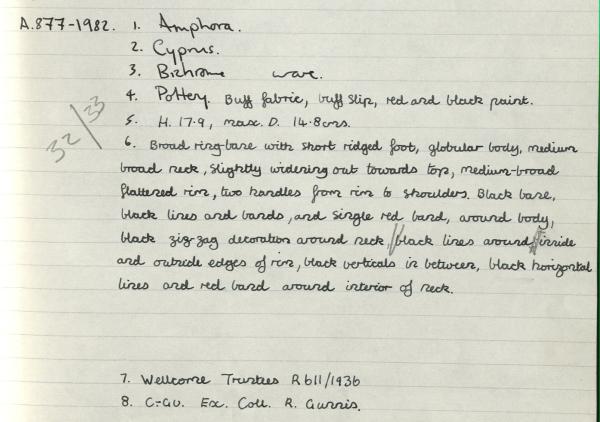 A.877-1982. 1. Amphora.
2. Cyprus.
3. Bichrome ware.
4. Pottery. Buff fabric, buff slip, red and black paint.
5. H. 17.9, max. D. 14.8cms.
32/33
6. Broad ring-base with short ridged foot, globular body, medium
broad neck, slightly widening out towards top, medium-broad
flattened rim, two handles from rim to shoulders. Black base,
black lines and bands, and single red band, around body,
black zig-zag decoration around neck, black lines around inside
and outside edges of rim, black verticals in between, black horizontal
lines and red band around interior of neck.
7. Wellcome Trustees R611/1936
8. C-GU. Ex. Coll. R. Gunnis.